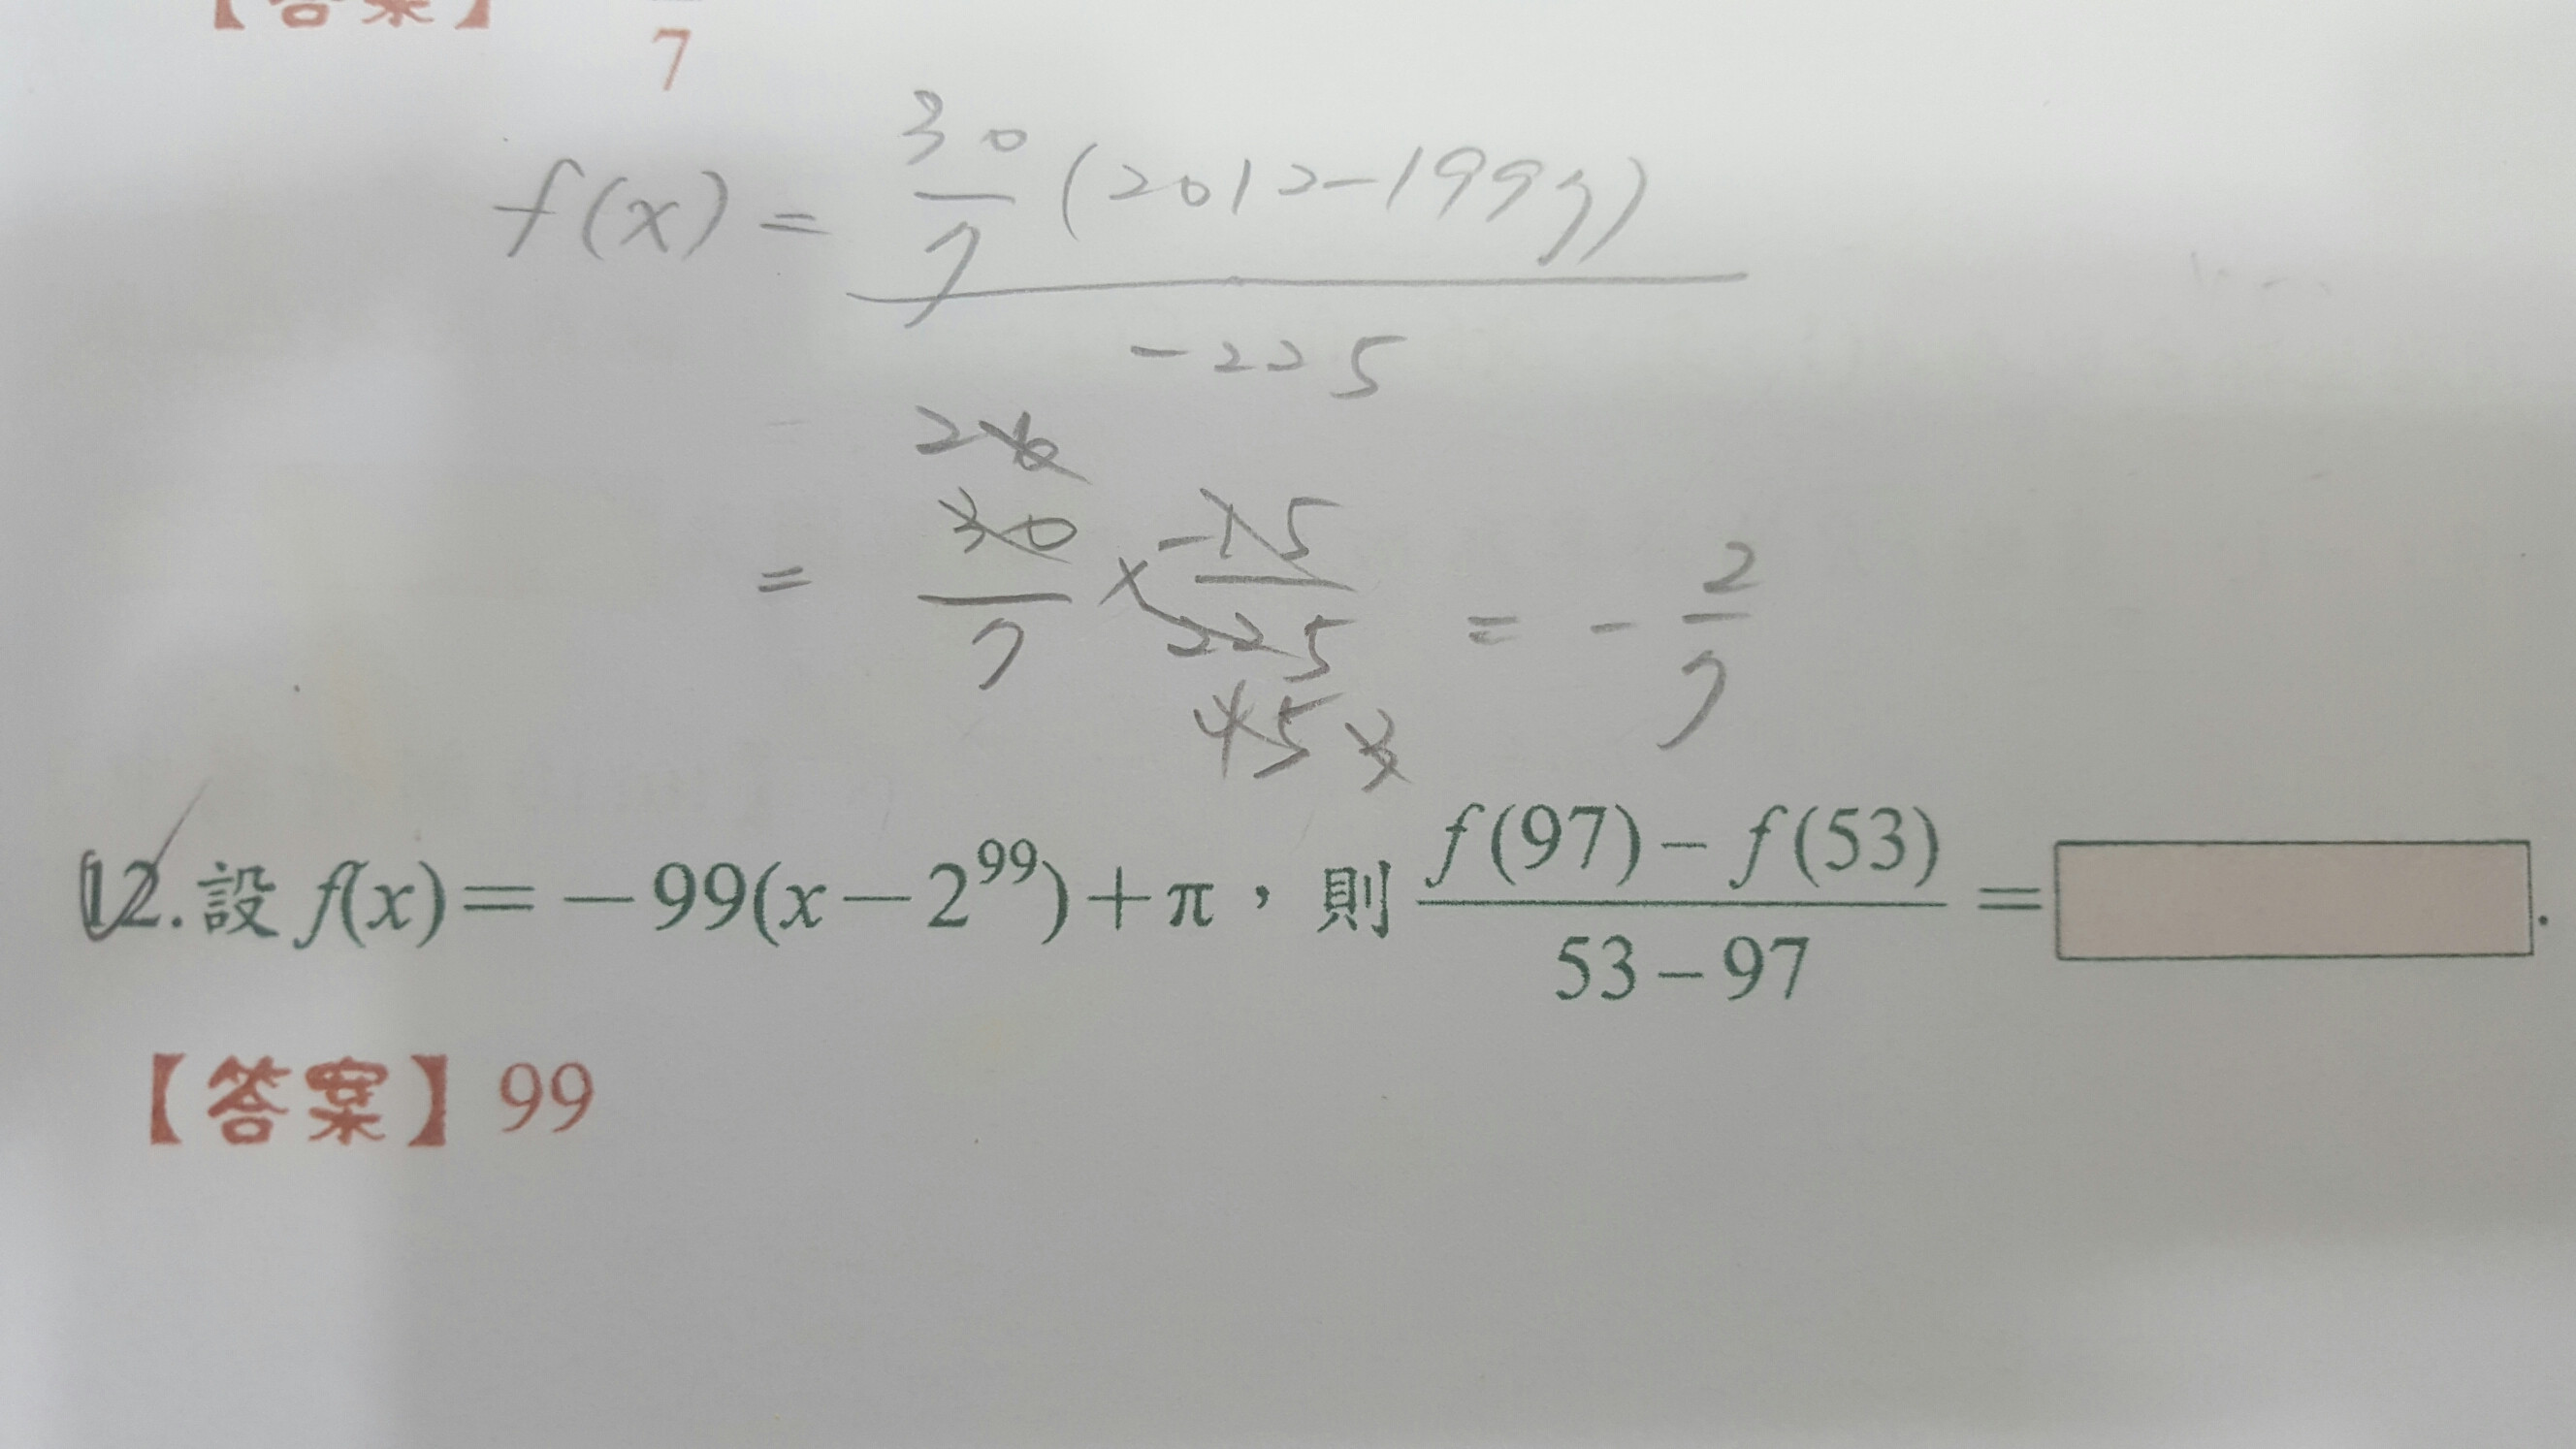 【答案】
7
f(x) = 30/7 (2012-1997) / -225
2 6
= 30/7 × -15/225 = - 2/7
45 3
12. 設 f(x) = -99(x-2^99)+π，則 f(97)-f(53) / 53-97 = .
【答案】99